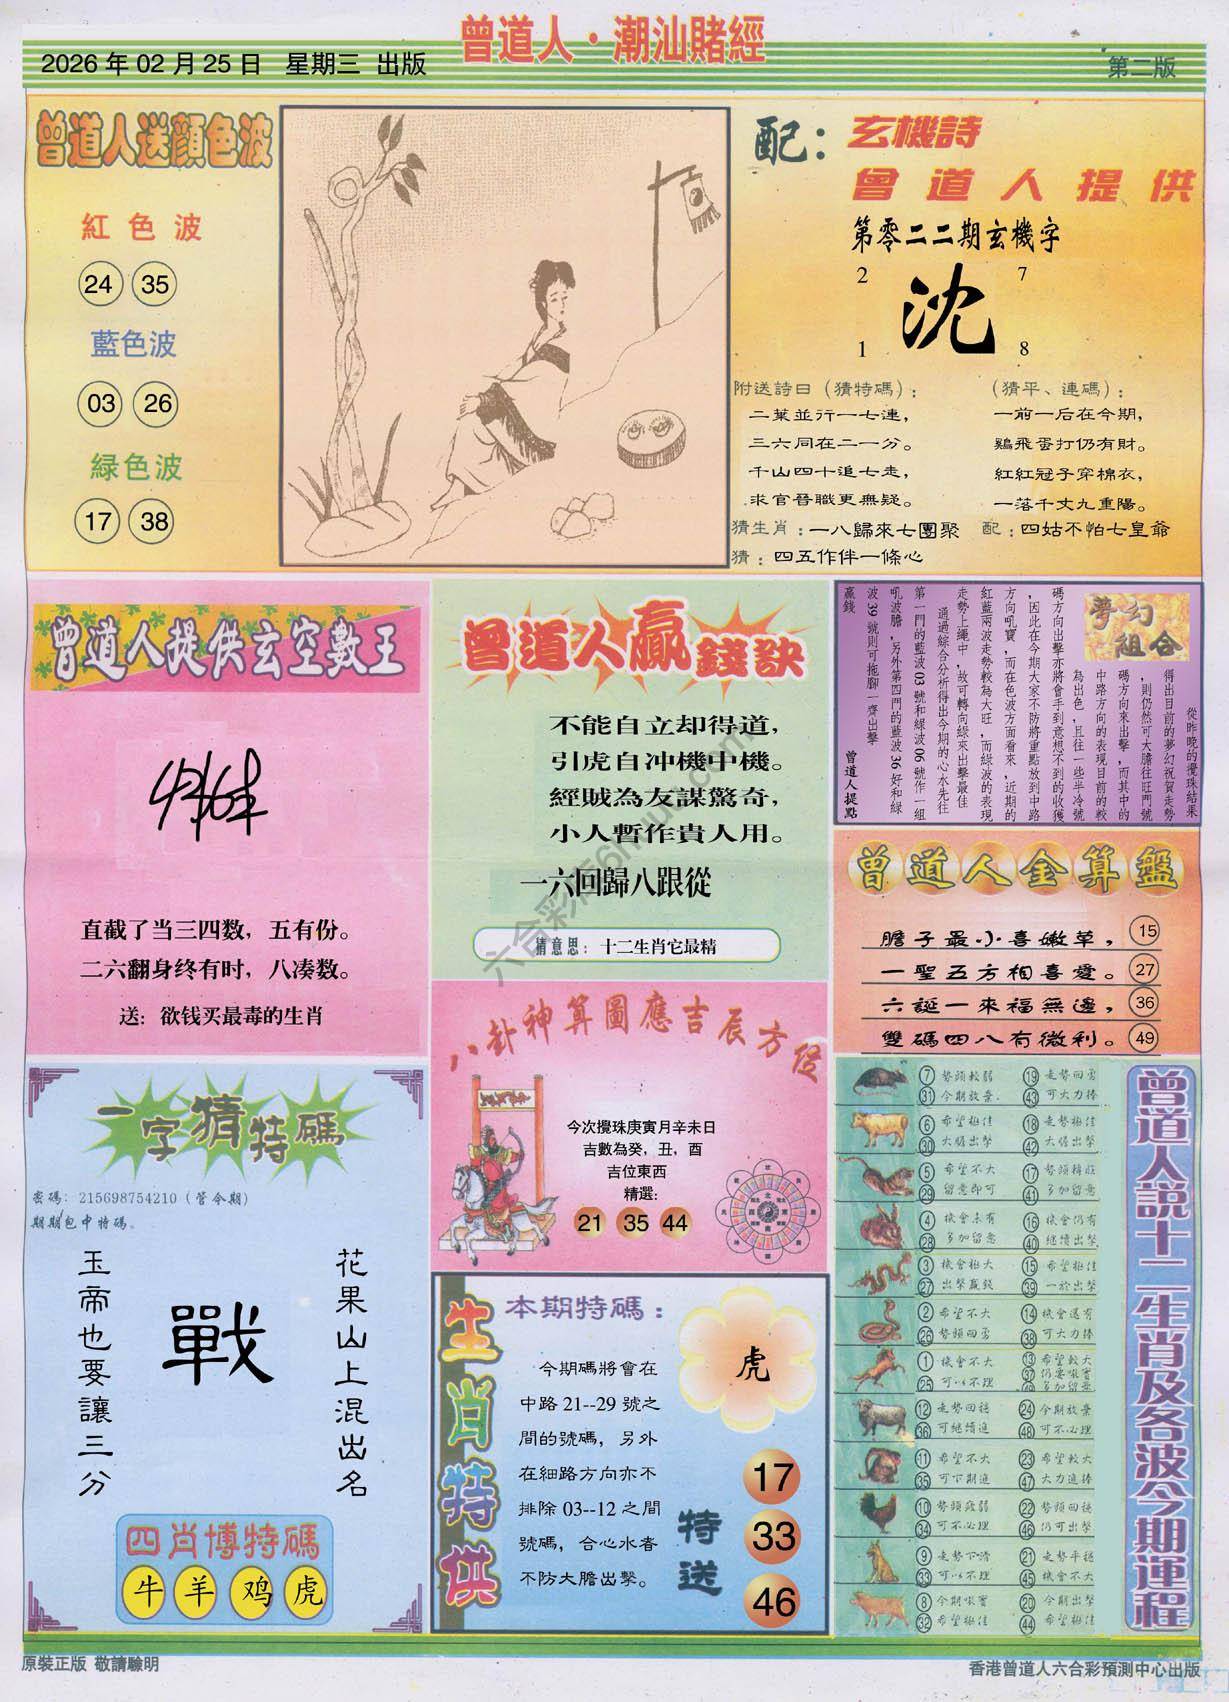 曾道人·潮汕賭經
2026 年 02 月 25 日 星期三 出版
第二版
曾道人送顔色波
紅色波
24 35
藍色波
03 26
緑色波
17 38
配:
玄機詩
曾道人提供
第零二二期玄機字
2 7
沈
1 8
附送詩曰（猜特碼）:
二葉並行一七連，
三六同在二一分。
千山四十追七走，
求官晉職更無疑。
（猜平、連碼）:
一前一后在今期，
鷄飛蛋打仍有財。
紅紅冠子穿棉衣，
一落千丈九重陽。
猜生肖：一八歸來七團聚
配：四姑不怕七皇爺
猜：四五作伴一條心
曾道人提供玄空數王
直截了当三四数，五有份。
二六翻身终有时，八凑数。
送：欲钱买最毒的生肖
曾道人贏錢訣
不能自立却得道，
引虎自冲機中機。
經賊為友謀驚奇，
小人暫作貴人用。
一六回歸八跟從
猜意思：十二生肖它最精
夢幻組合
從昨晚的攪珠結果
得出目前的夢幻祝賀走勢
，則仍然可大膽往旺門號
碼方向來出擊，而其中的
中路方向的表現目前的較
為出色，且往一些半冷號
碼方向出擊亦將會手到意想不到的收獲
，因此在今期大家不防將重點放到中路
方向吼寶，而在色波方面看來，近期的
紅藍兩波走勢較為大旺，而綠波的表現
走勢上繩中，故可轉向綠來出擊最佳
通過綜合分析得出今期的心水先往
第一門的藍波 03 號和綠波 06 號作一組
吼波膽，另外第四門的藍波 36 好和綠
波 39 號則可拖腳一齊出擊
贏錢
曾道人提點
曾道人金算盤
膽子最小喜嫩草， 15
一聖五方相喜愛。 27
六誕一來福無邊， 36
雙碼四八有微利。 49
八卦神算圖應吉辰方位
今次攪珠庚寅月辛未日
吉數為癸，丑，酉
吉位東西
精選：
21 35 44
一字猜特碼
密碼：215698754210（管令期）
期期包中特碼。
花果山上混出名
戰
玉帝也要讓三分
四肖博特碼
牛 羊 鸡 虎
生肖特供
本期特碼：
虎
今期碼將會在
中路 21--29 號之
間的號碼，另外
在細路方向亦不
排除 03--12 之間
號碼，合心水者
不防大膽出擊。
特送
17
33
46
曾道人說十二生肖及各波今期運程
7 勢頭較弱 19 走勢回勇
31 今期放棄 43 可大力捧
6 希望極佳 18 走勢極佳
30 大膽出擊 42 大膽出擊
5 希望不大 17 勢頭轉旺
29 留意即可 41 多加留意
4 機會未有 16 機會仍有
28 多加留意 40 繼續出擊
3 機會極大 15 希望極佳
27 出擊贏錢 39 一於出擊
2 希望不大 14 機會還有
26 勢頭回勇 38 可大力捧
1 機會不大 13 希望較大
25 可以不理 37 仍要吼實
多加留意
12 走勢回穩 24 今期放棄
36 可繼續追 48 可不必理
11 希望不大 23 希望較大
35 可下期追 47 大力追捧
10 勢頭疲弱 22 勢頭回穩
34 可不必理 46 仍可出擊
9 走勢下滑 21 走勢平穩
33 可以不理 45 機會不大
8 今期吼實 20 今期出擊
32 希望極佳 44 希望極佳
原裝正版 敬請驗明
香港曾道人六合彩預測中心出版